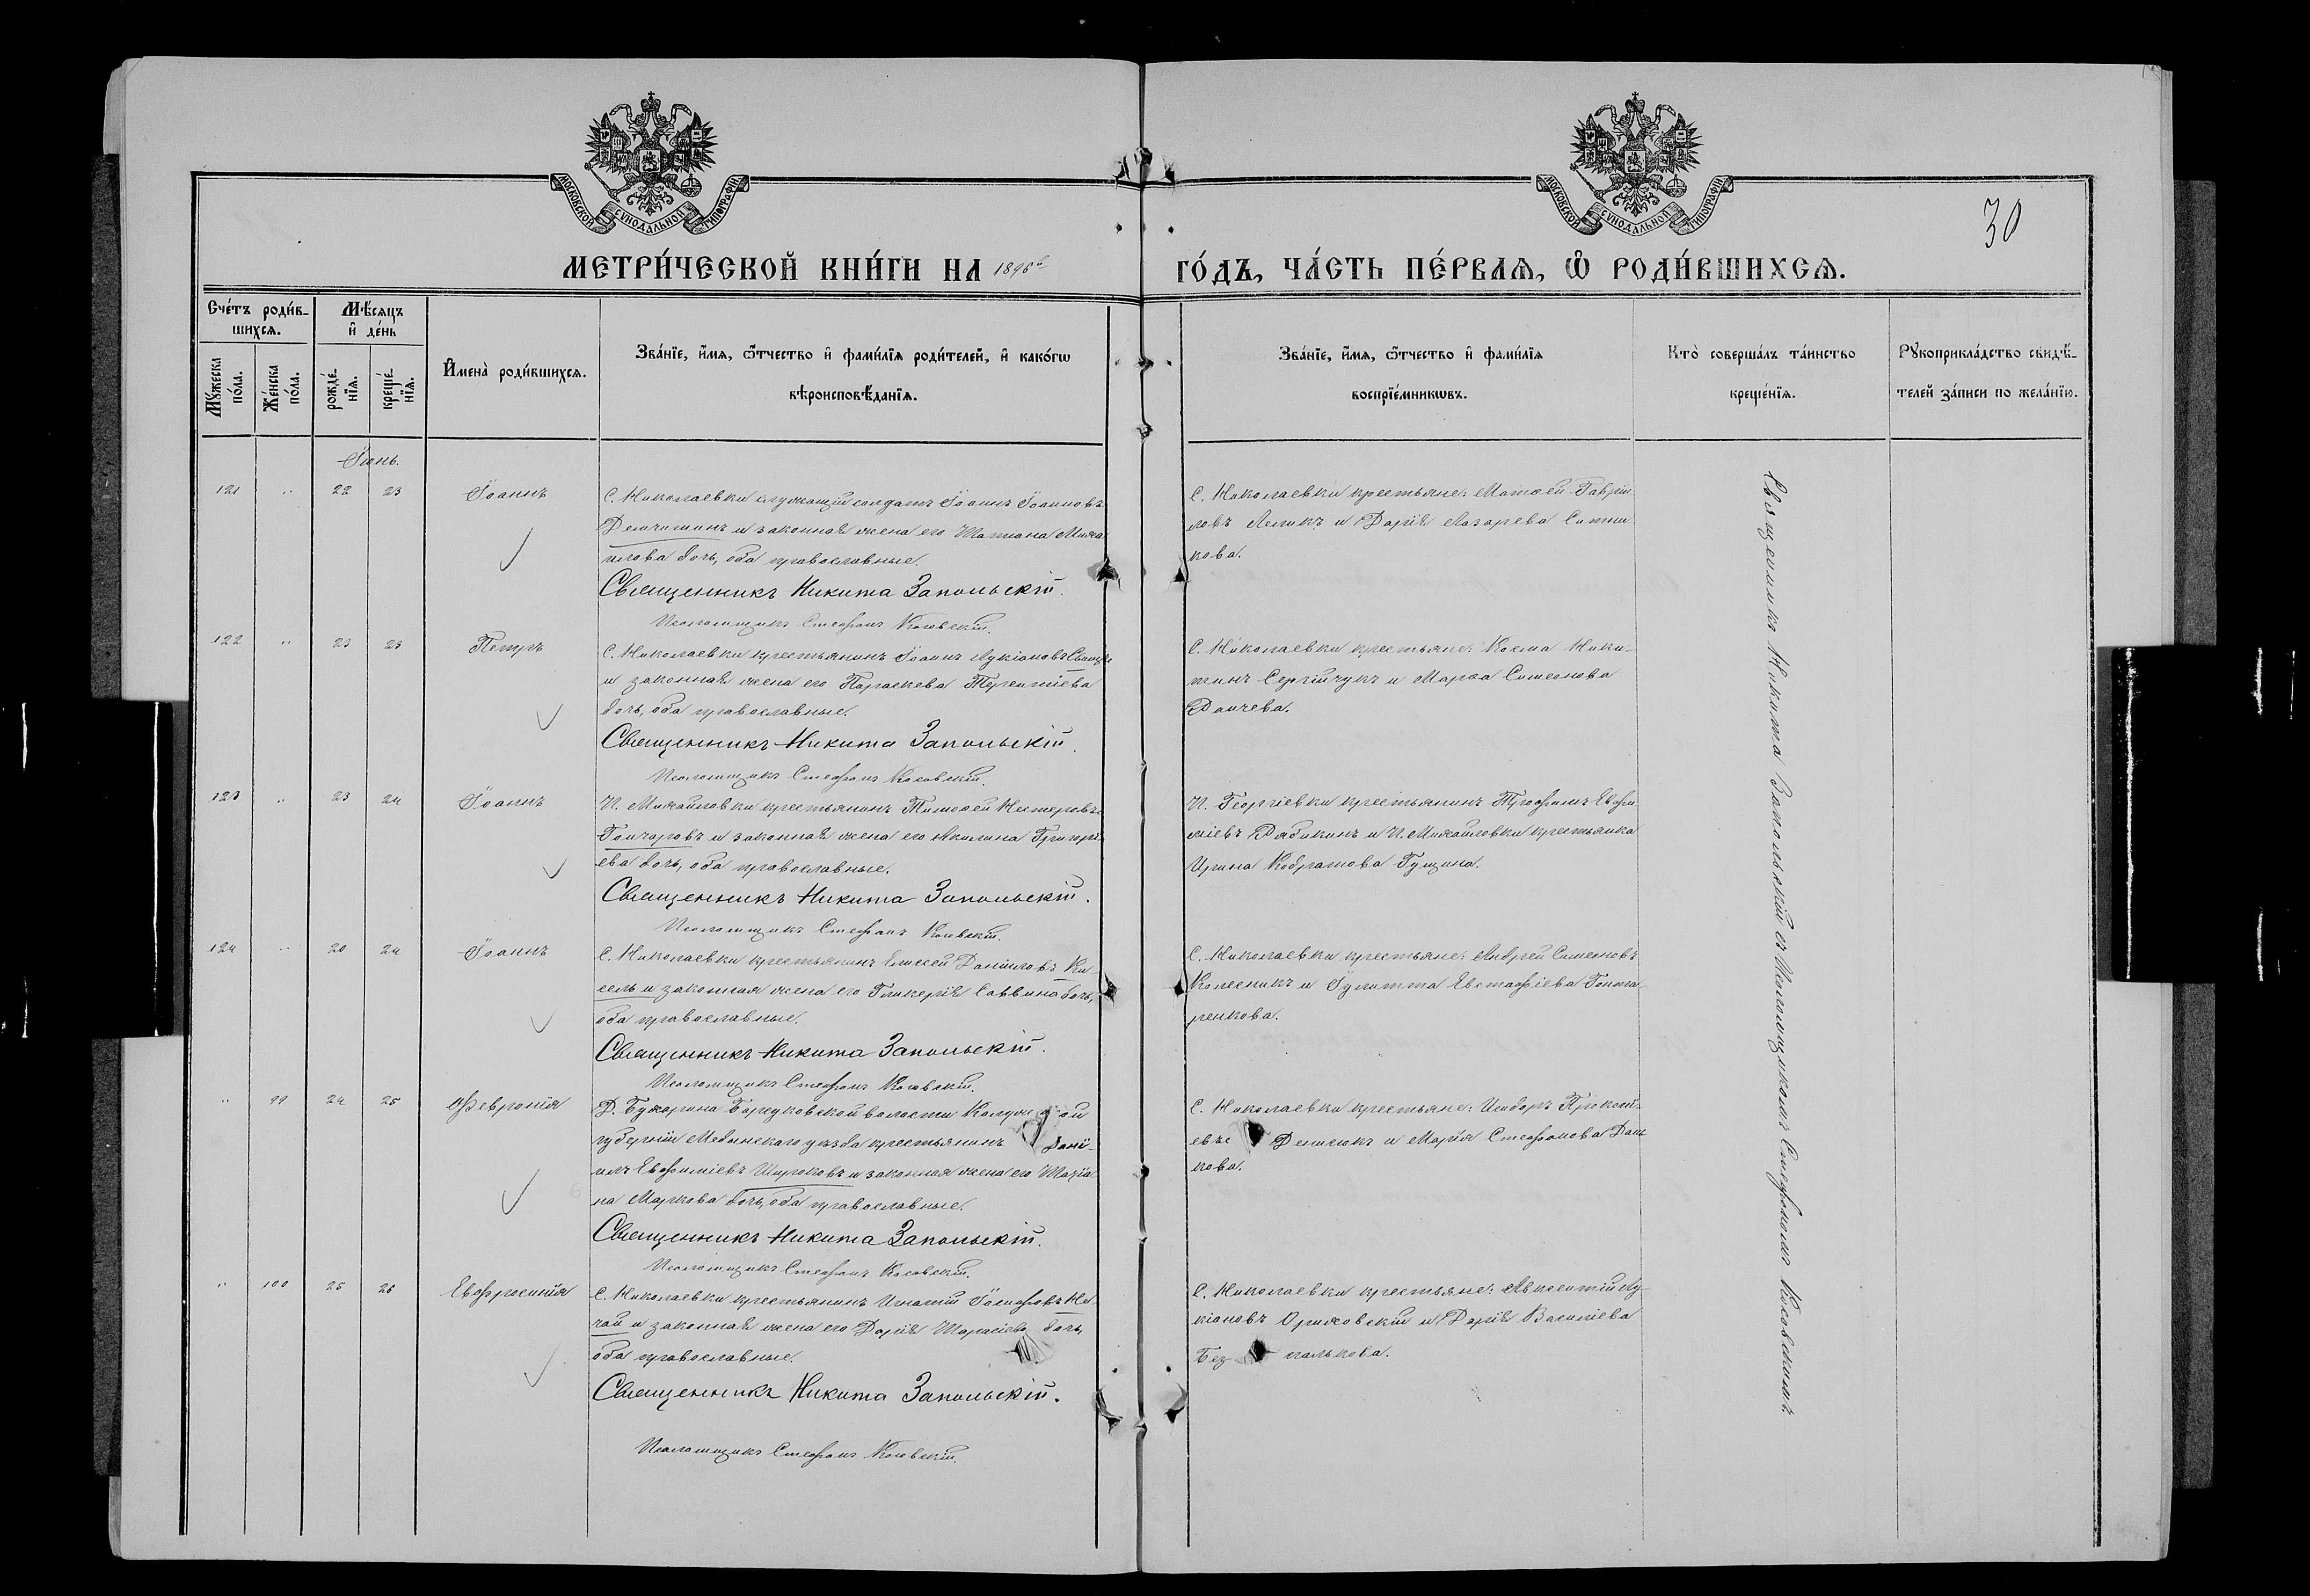 МОСКОВСКОЙ СѴНОДАЛЬНОЙ ТИПОГРАФІИ
МОСКОВСКОЙ СѴНОДАЛЬНОЙ ТИПОГРАФІИ
30
МЕТРИ́ЧЕСКОЙ КНИ́ГИ НА 1896й
ГО́ДЪ, ЧА́СТЬ ПЕ́РВАѦ, Ѽ РОДИ́ВШИХСѦ.
Сче́тъ роди́вшихсѧ.
Мꙋжеска по́ла.
Же́нска по́ла.
Мѣ́сяцъ и҆ де́нь
рожде́нїѧ.
креще́нїѧ.
И҆мена̀ роди́вшихсѧ.
Зва́нїе, и҆́мѧ, ѻ҆́тчество и҆ фами́лїѧ роди́телей, и҆ како́гѡ
вѣроисповѣ́данїѧ.
Зва́нїе, и҆́мѧ, ѻ҆́тчество и҆ фами́лїѧ
воспрїе́мникѡвъ.
Кто̀ соверша́лъ та́инство
креще́нїѧ.
Рꙋкоприкла́дство свидѣ́-
телей за́писи по жела́нїю.
Іюнь.
121 " 22 23 Іоаннъ
С. Николаевки служащій солдатъ Іоаннъ Іоанновъ
и законная жена его Татіана Миха
илова дочь, оба православные.
Священникъ Никита Запольскій.
Псаломщикъ Стефанъ Косовскій.
С. Николаевки крестьяне: Матѳей Гаврiи
ловъ Лелик и Дарія Лазарева Ситни
кова.
122 " 23 23 Петръ
С. Николаевки крестьянинъ Іоаннъ Лукіановъ
и законная жена его Параскева Терентіева
дочь, оба православные.
Священникъ Никита Запольскій.
Псаломщикъ Стефанъ Косовскій.
С. Николаевки крестьяне: Косма Ники-
тинъ Сергійчукъ и Марѳа Симеонова
Данчева.
123 " 23 24 Іоаннъ
П. Михайловки крестьянинъ Тимоѳей Нестеровъ
Гончаровъ и законная жена его Акилина Григорі-
ева дочь, оба православные.
Священникъ Никита Запольскій.
Псаломщикъ Стефанъ Косовскій.
П. Георгіевки крестьянинъ Трофимъ Евфи
міевъ Рябикинъ и П. Михайловки крестьянка
Ирина Гущина.
124 " 20 24 Іоаннъ
С. Николаевки крестьянинъ Елисей Даніиловъ Ки
сель и законная жена его Гликерія Саввина дочь,
оба православные.
Священникъ Никита Запольскій.
Псаломщикъ Стефанъ Косовскій.
С. Николаевки крестьяне: Андрей Симеоновъ
Колесникъ и Іулитта Евстафіева Гонча
ренкова.
" 99 24 25 Февронія
Д. Бухарина волости Калужской
губерніи Медынскаго уѣзда крестьянинъ Дані-
илъ Евфиміевъ Широковъ и законная жена его Татіа
на Маркова дочь, оба православные.
Священникъ Никита Запольскій.
Псаломщикъ Стефанъ Косовскій.
С. Николаевки крестьяне: Исидоръ Прокопі-
евъ Денисюкъ и Марія Стефанова Дан
кова.
" 100 25 26 Евфросинія
С. Николаевки крестьянинъ Игнатій Іосифовъ Не-
чай и законная жена его Дарія Тарасіева дочь,
оба православные.
Священникъ Никита Запольскій.
Псаломщикъ Стефанъ Косовскій.
С. Николаевки крестьяне: Авксентій Лу-
кіановъ Ориховскій и Дарія Василіева
Без палькова.
Священникъ Никита Запольскій съ Псаломщикомъ Стефаномъ Косовскимъ